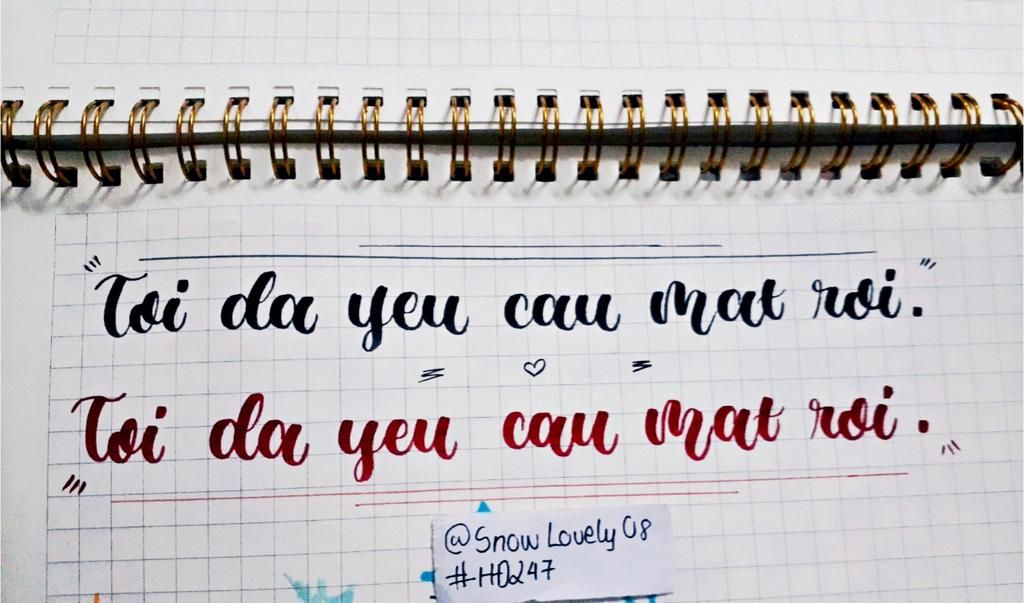 "Toi da yeu cau mat roi."
Toi da yeu cau mat roi.
@Snow Lovely 08
#HD247